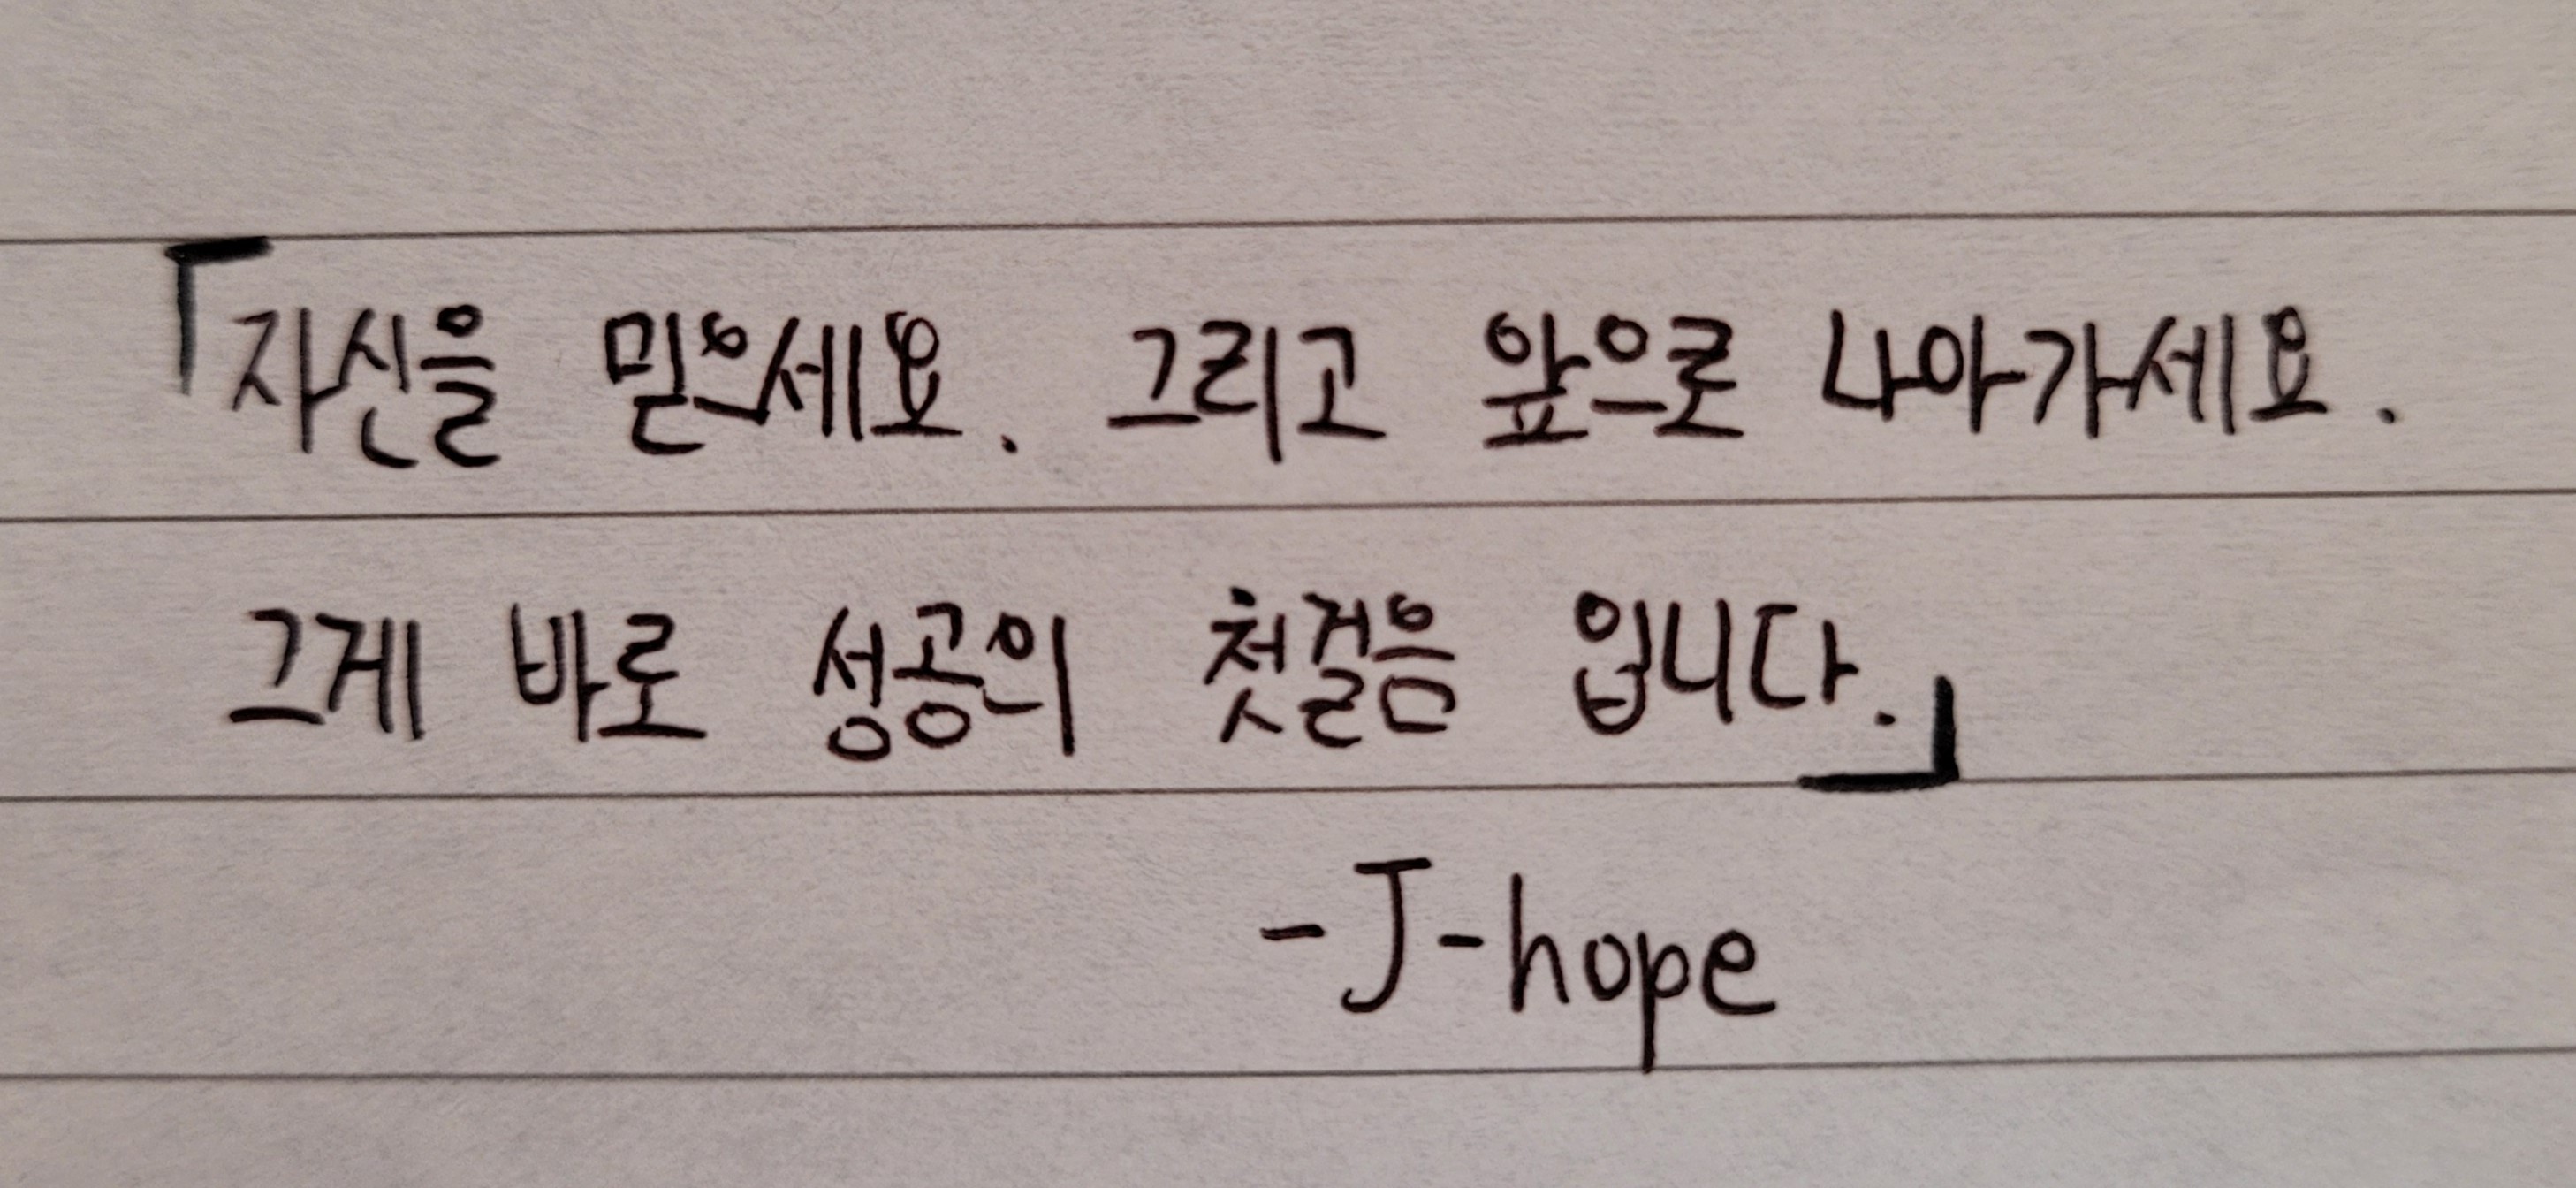 「자신을 믿으세요. 그리고 앞으로 나아가세요.
그게 바로 성공의 첫걸음 입니다.」
-J-hope